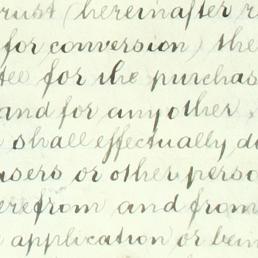 trust (hereinafter r
for conversion) the
tee for the purchas
and for any other
shall effectually d
asers or other perso
erefrom and from
application or bein